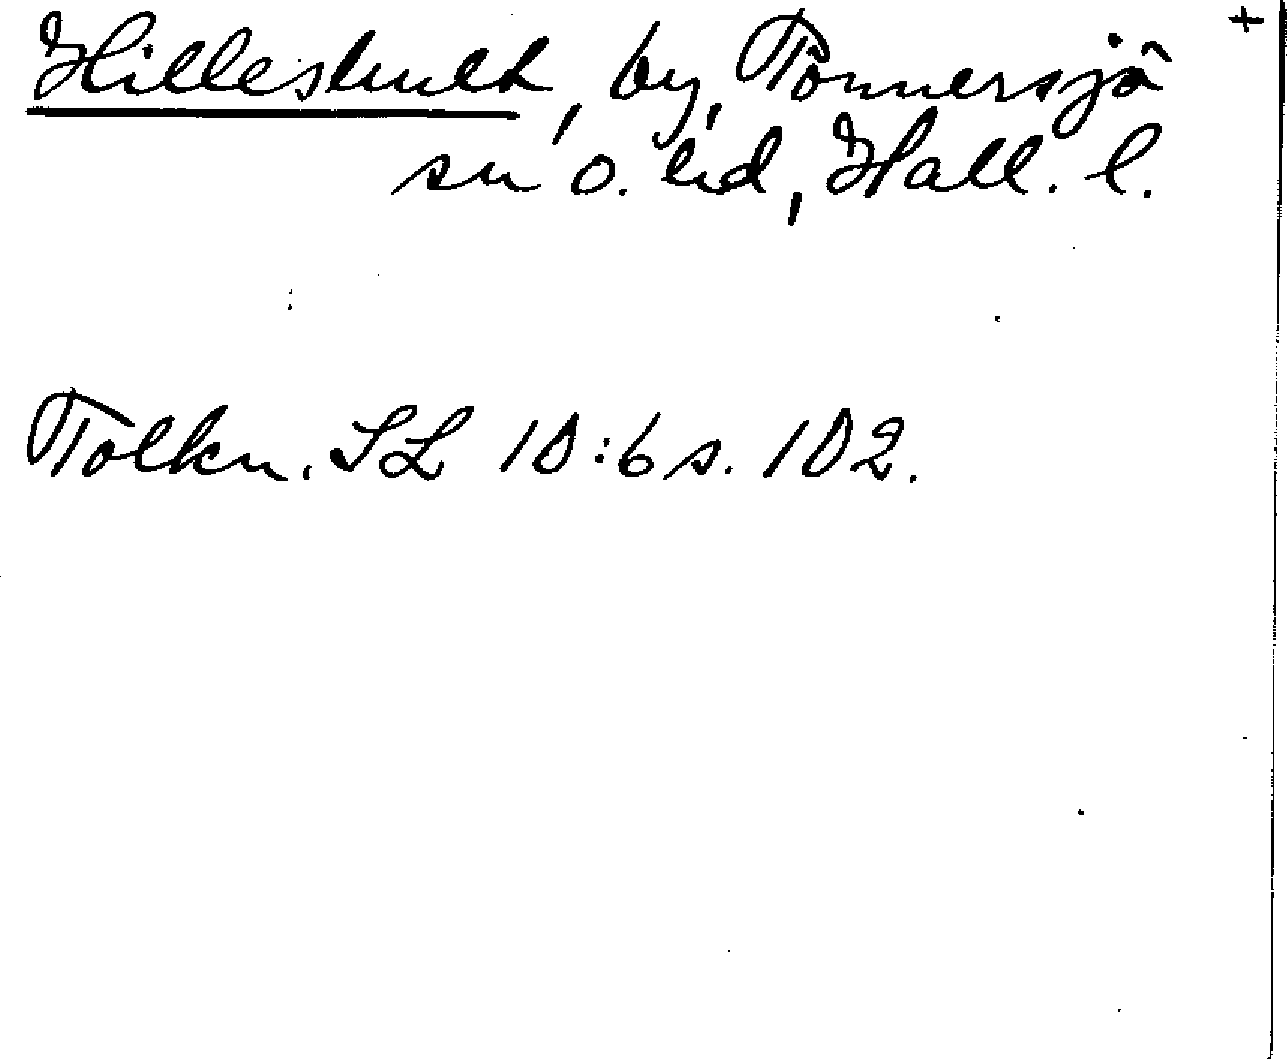 Hilleshult, by, Tönnersjö +
sn o. hd, Hall. l.
Tolkn. SL 10:6 s. 102.